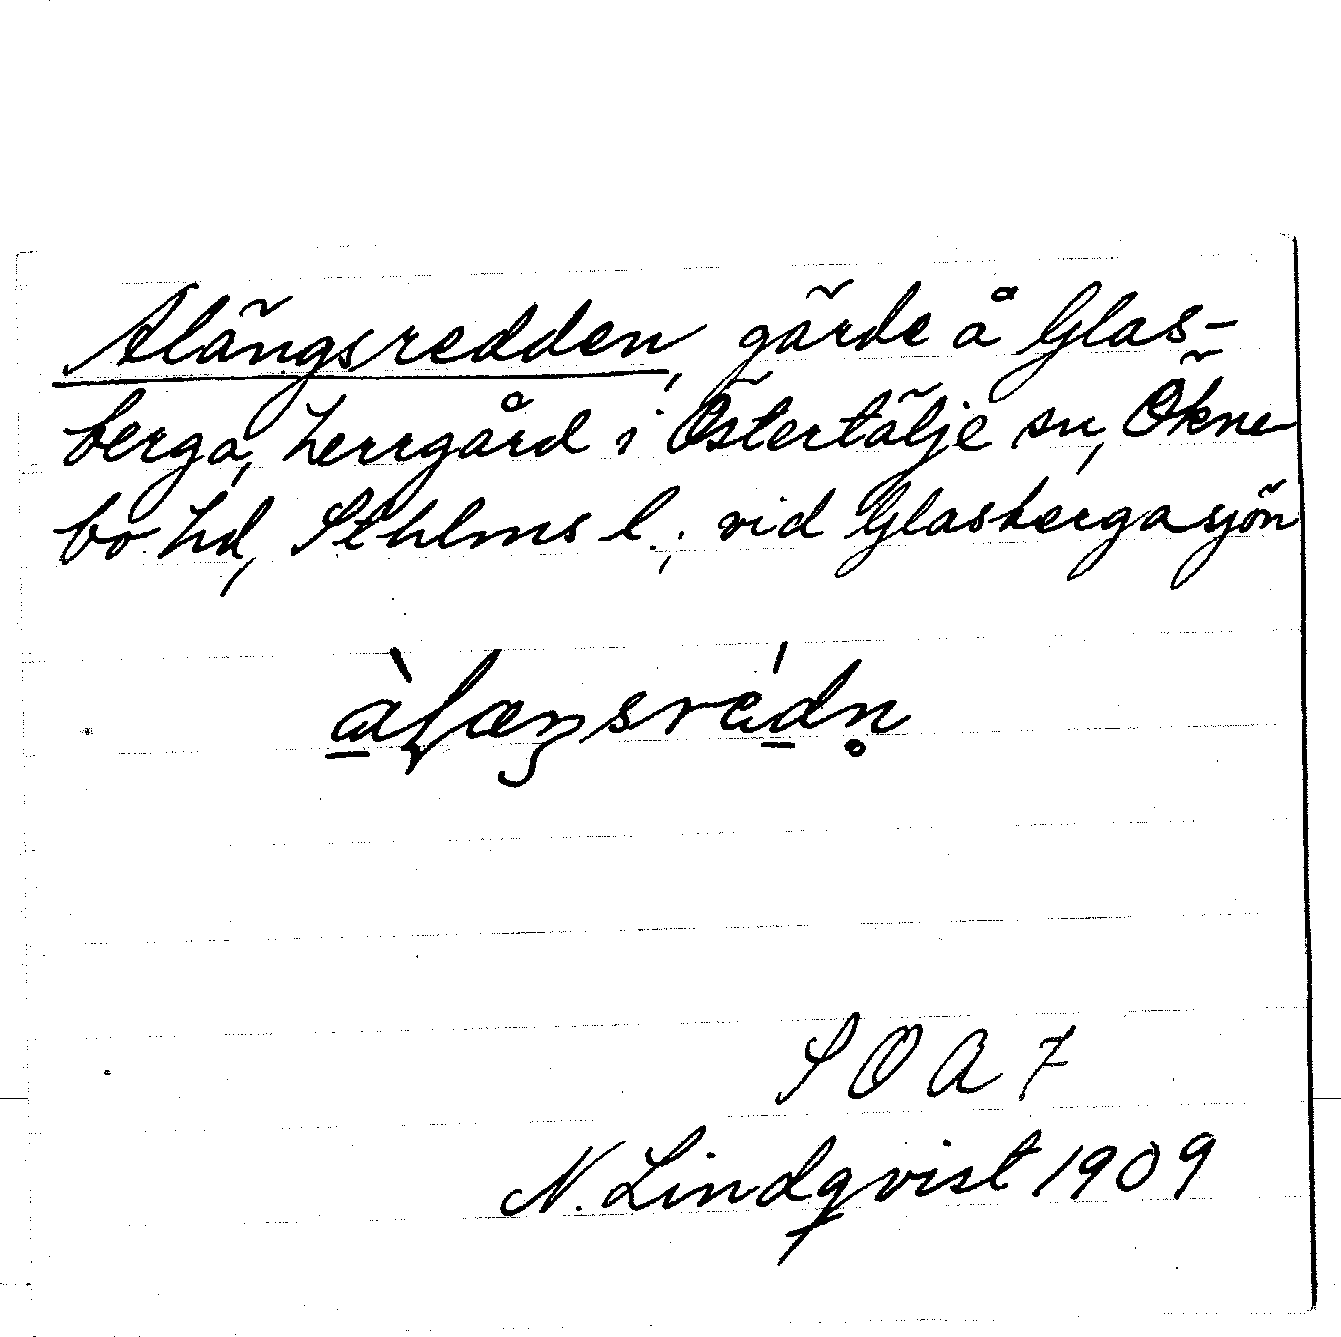 Alängsredden, gärde å Glas-
berga, herrgård i Östertälje sn, Økne-
bo hd, Sthlms l.; vid Glasbergasjön
àlæŋsrédn̥
S O A 7
N. Lindqvist 1909